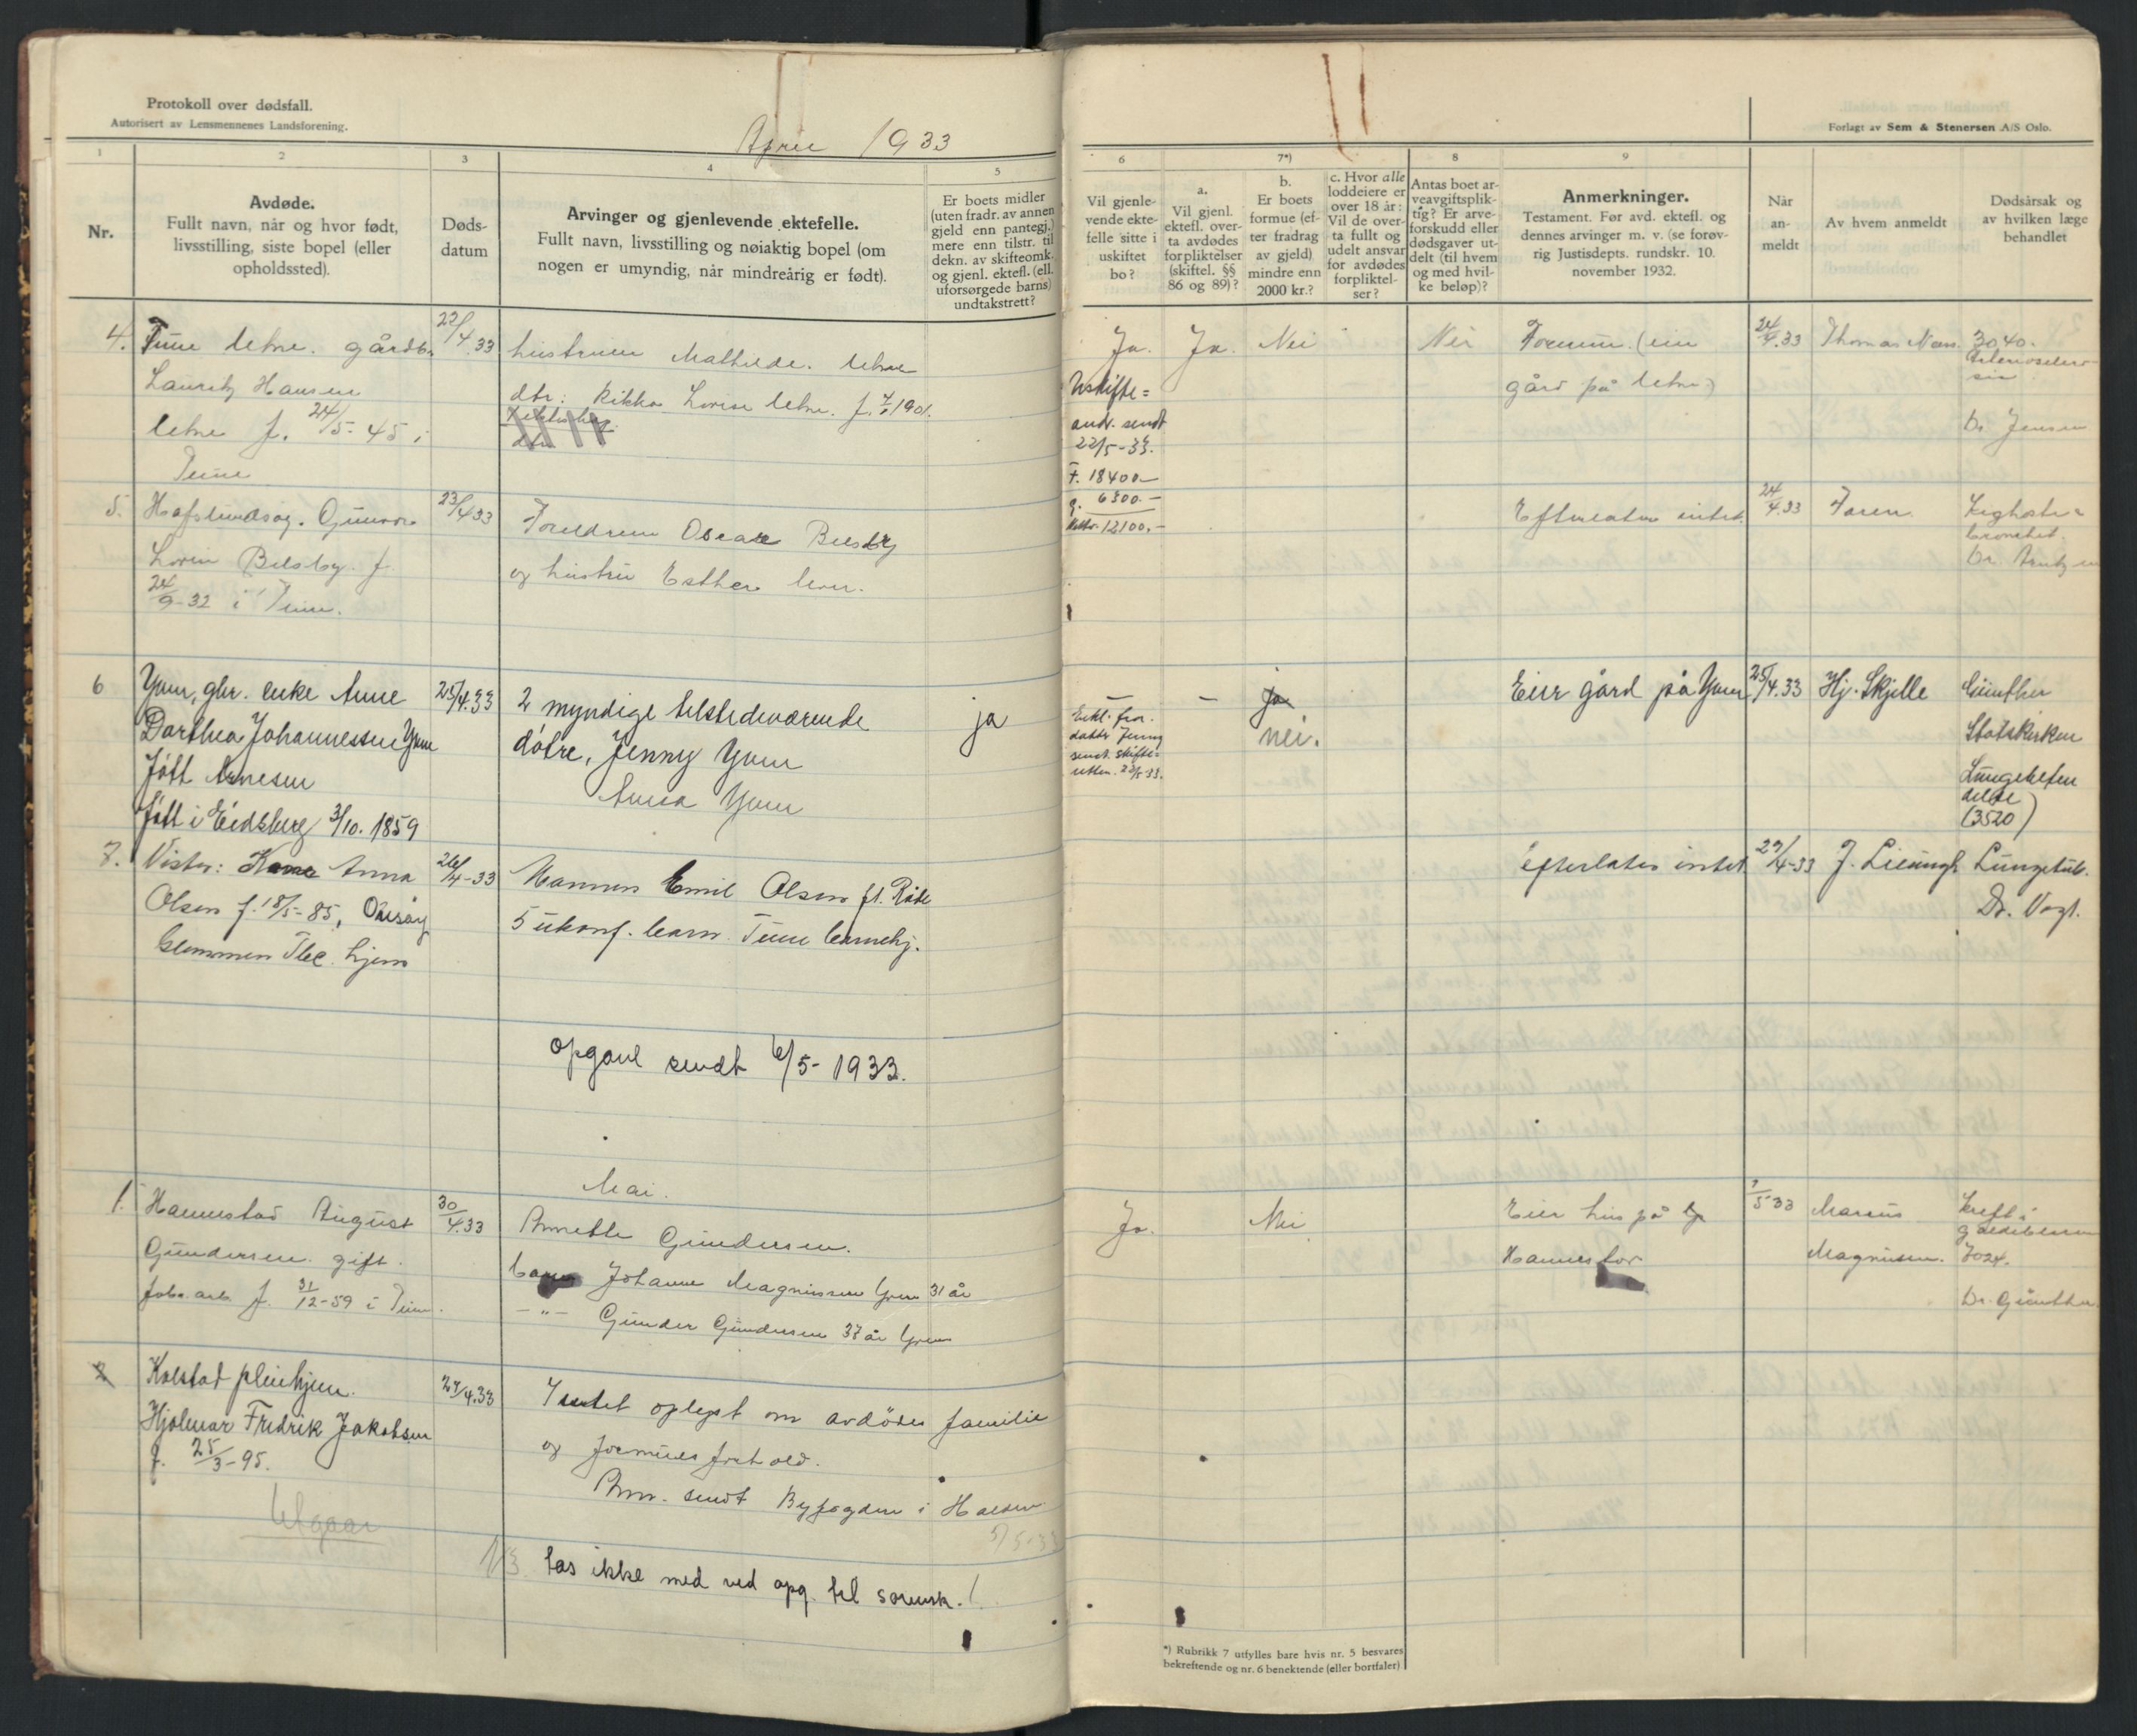 Protokoll over dødsfall.
Autorisert av Lensmennenes Landsforening.
April 1933
1
2
3
4
5
Nr.
Avdøde.
Fullt navn, når og hvor født,
livsstilling, siste bopel (eller
opholdssted).
Døds-
datum
Arvinger og gjenlevende ektefelle.
Fullt navn, livsstilling og nøiaktig bopel (om
nogen er umyndig, når mindreårig er født).
Er boets midler
(uten fradr. av annen
gjeld enn pantegj.)
mere enn tilstr. til
dekn. av skifteomk.
og gjenl. ektefl. (ell.
uforsørgede barns)
undtakstrett?
4.
Tune gårdbr.
Lauritz Hansen
f. 24/5-45 i
Tune
22/4.33
hustruen Mathilde.
dtr: Rikka Lovise f. 1901.
5.
Hafslundsøy. Gunvor
Bilsby. f.
24/9-32 i Tune.
23/4 33
Foreldrene Oscar Bilsby
og hustru Esther
6
Yven, gbr. enke Anne
Dorthea Johannessen Yven
født Arnesen
født i Eidsberg 3/10. 1859
25/4.33
2 myndige tilstedeværende
døtre, Jenny Yven
Anna Yven
ja
7.
Vister: Kone Anna
Olsen f. 18/5-85,
Glommen Tbc. hjem
26/4-33
Mannen Emil Olsen ft. Råde
5 ukonf. barn. Tune barnehj.
opgave sendt 6/5-1933.
Mai.
1.
Hannestad August
Gundersen gift.
f. 31/12-59 i Tune.
30/4.33
Annette Gundersen.
barn Johanne Magnussen Yven 31 år
-"- Gunder Gundersen 37 år Yven
2
Kolstad pleiehjem.
Hjalmar Fredrik Jakobsen
f. 25/3-95.
Utgaar
27/4.33
Intet oplyst om avdødes familie
og formuesforhold.
Anm. sendt Byfogden i Halden
5/5-33
tas ikke med ved opg. til sorensk.!
Forlagt av Sem & Stenersen A/S Oslo.
6
7*)
8
9
Vil gjenle-
vende ekte-
felle sitte i
uskiftet
bo?
a.
Vil gjenl.
ektefl. over-
ta avdødes
forpliktelser
(skiftel. §§
86 og 89)?
b.
Er boets
formue (ef-
ter fradrag
av gjeld)
mindre enn
2000 kr.?
c. Hvor alle
loddeiere er
over 18 år:
Vil de over-
ta fullt og
udelt ansvar
for avdødes
forpliktel-
ser?
Antas boet ar-
veavgiftsplik-
tig? Er arve-
forskudd eller
dødsgaver ut-
delt (til hvem
og med hvil-
ke beløp)?
Anmerkninger.
Testament. Før avd. ektefl. og
dennes arvinger m. v. (se forøv-
rig Justisdepts. rundskr. 10.
november 1932.
Når
an-
meldt
Av hvem anmeldt
Dødsårsak og
av hvilken læge
behandlet
Ja.
Ja.
Nei
Nei
Formue. (ein
gård på
24/4.33
Thomas Næss.
3040.
Dr. Jensen
Uskifte=
andr. sendt
22/5-33.
F. 18400.-
g. 6300.-
Netto. 12100.-
Efterlater intet.
24/4.33
Faren.
bronchit.
-
-
ja
nei.
Erkl. fra
datter Jenny
sendt. skifte=
retten. 22/5-33.
Eier gård på Yven
25/4.33
Hj. Skjelle
Günther
Statskirken
Lungebeten
delse
(3520)
efterlater intet
29/4-33
J. Lieungh
Lungetub.
Dr. Vogt.
Ja.
Nei
Eier hus på
Hannestad
5 33
Marius
Magnussen.
kreft i
galdeblæren
7024.
Dr. Günther.
*) Rubrikk 7 utfylles bare hvis nr. 5 besvares
bekreftende og nr. 6 benektende (eller bortfaler)